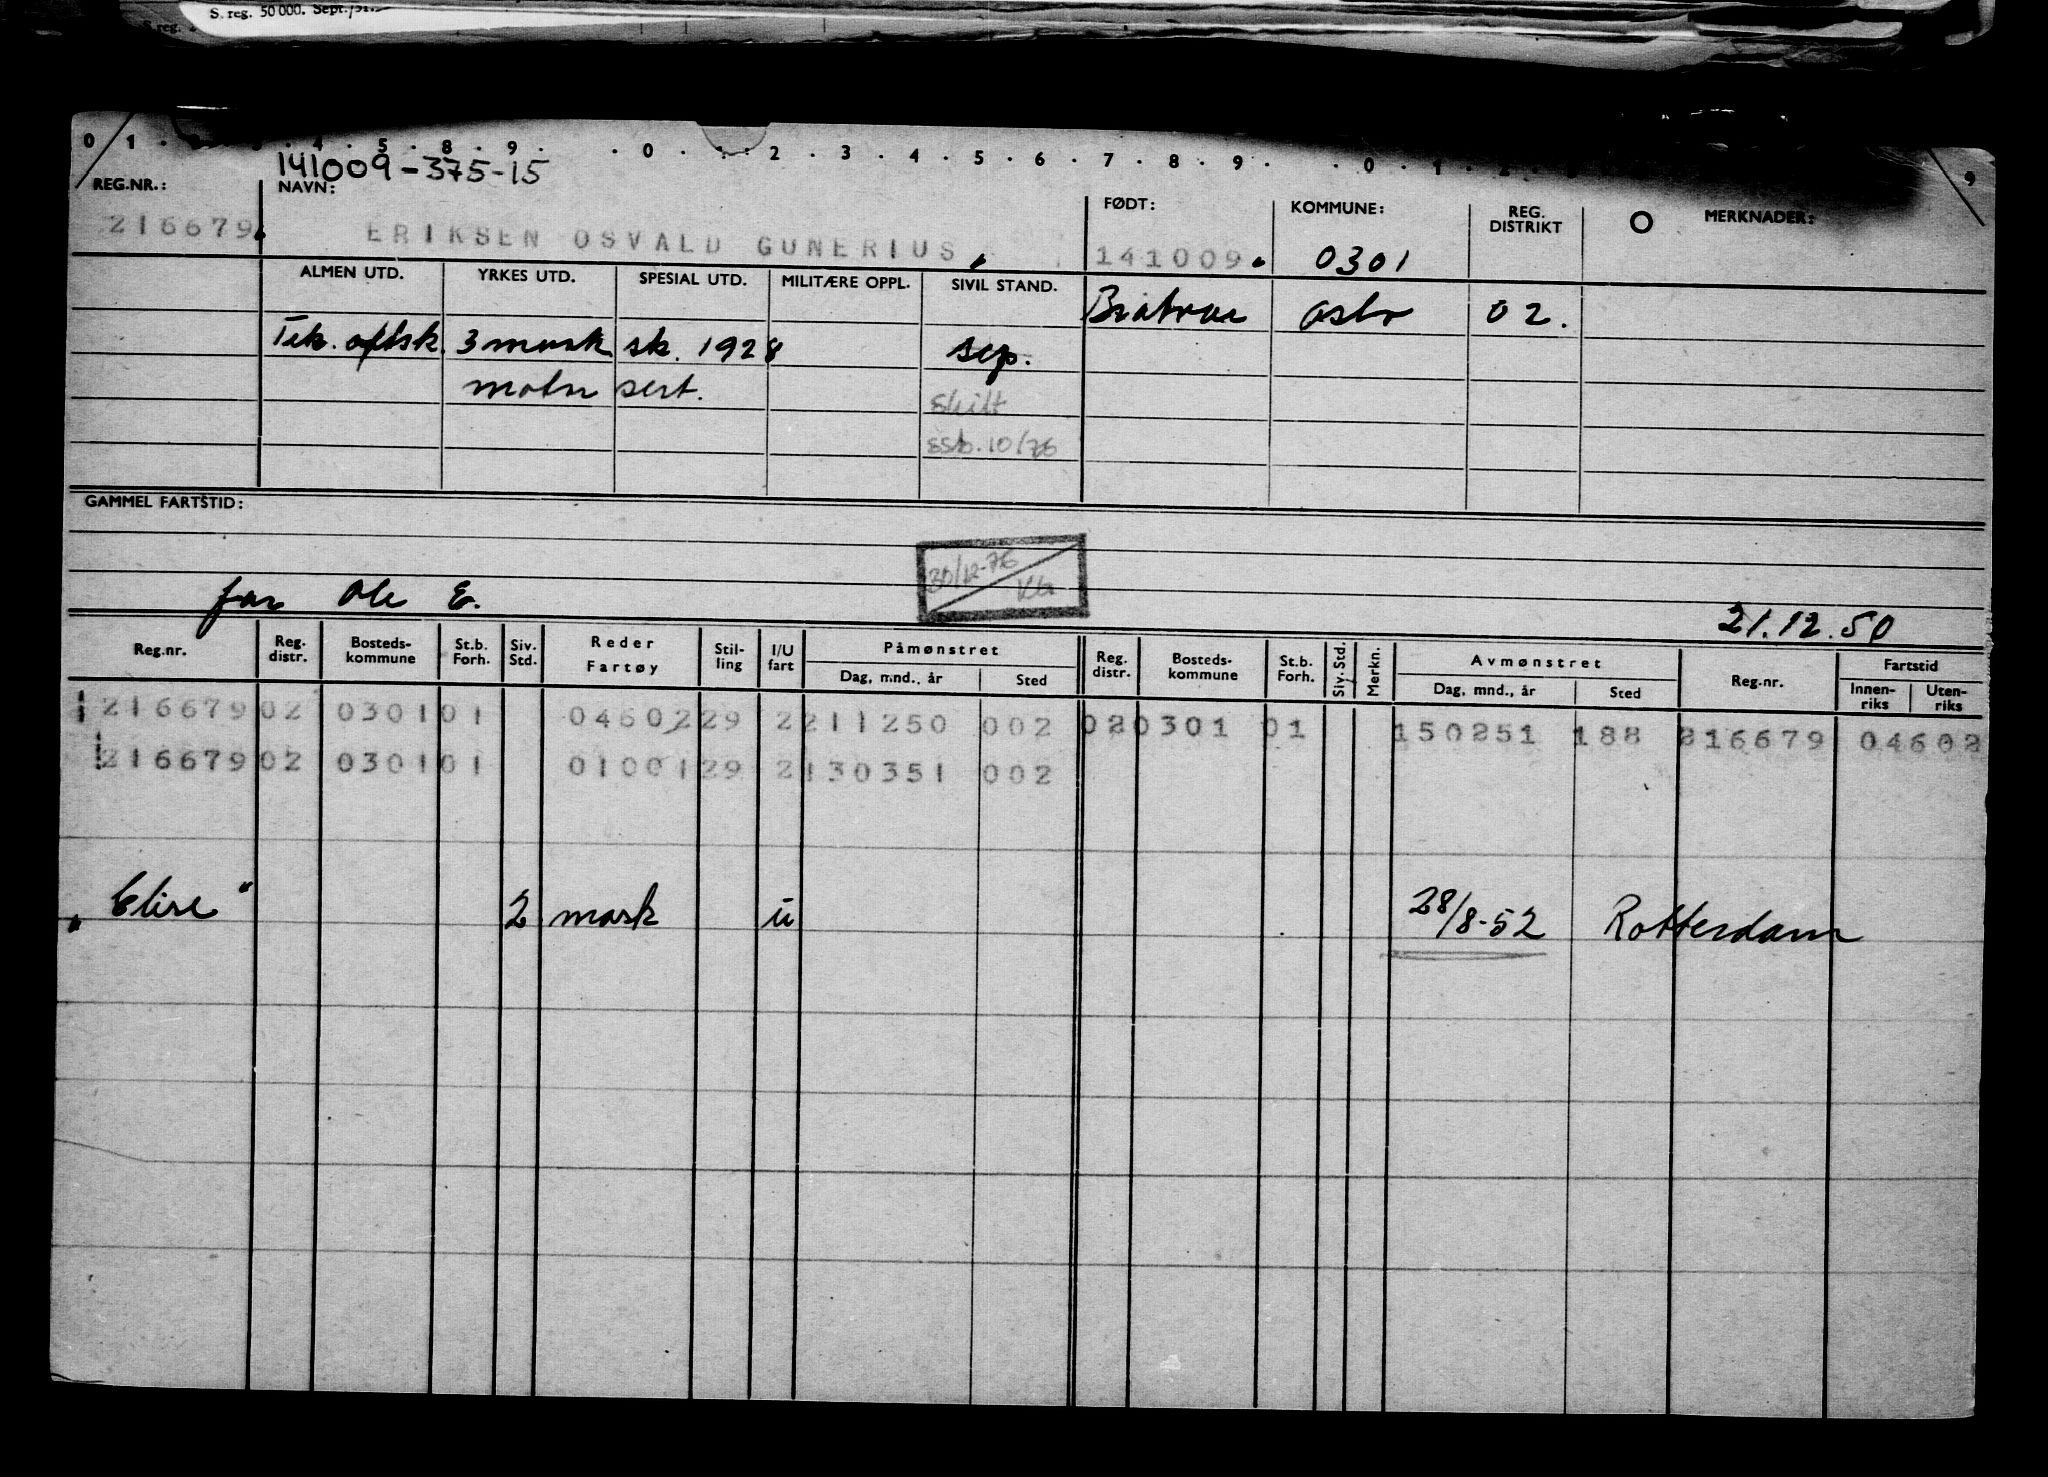 S. reg. 50 000. Sept.
0 1 . 4 . 5 . 8 . 9 . . 0 . 1 . 2 . 3 . 4 . 5 . 6 . 7 . 8 . 9 . . 0 . 1 . 2 9
141009-375-15
REG.NR.: NAVN: FØDT: KOMMUNE: REG. DISTRIKT MERKNADER:
216679. ERIKSEN OSVALD GUNERIUS, 141009. 0301
ALMEN UTD. YRKES UTD. SPESIAL UTD. MILITÆRE OPPL. SIVIL STAND.
Oslo 02.
Tek. aftsk. 3 mask sk. 1928 sep.
motor sert. skilt
ssb. 10/76
GAMMEL FARTSTID:
30/12-76
far Ole E. 21.12.50
Reg.nr. Reg. distr. Bosteds-kommune St.b. Forh. Siv. Std. Reder Fartøy Stil-ling I/U fart Påmønstret Dag, mnd., år Sted Reg. distr. Bosteds-kommune St.b. Forh. Siv. Std. Merkn. Avmønstret Dag, mnd., år Sted Reg.nr. Fartstid Innen-riks Uten-riks
216679 02 0301 01 04602 29 2 211250 002 02 0301 01 150251 188 216679 04602
216679 02 0301 01 01001 29 2 130351 002
"Elise" 2 mask u 28/8-52 Rotterdam